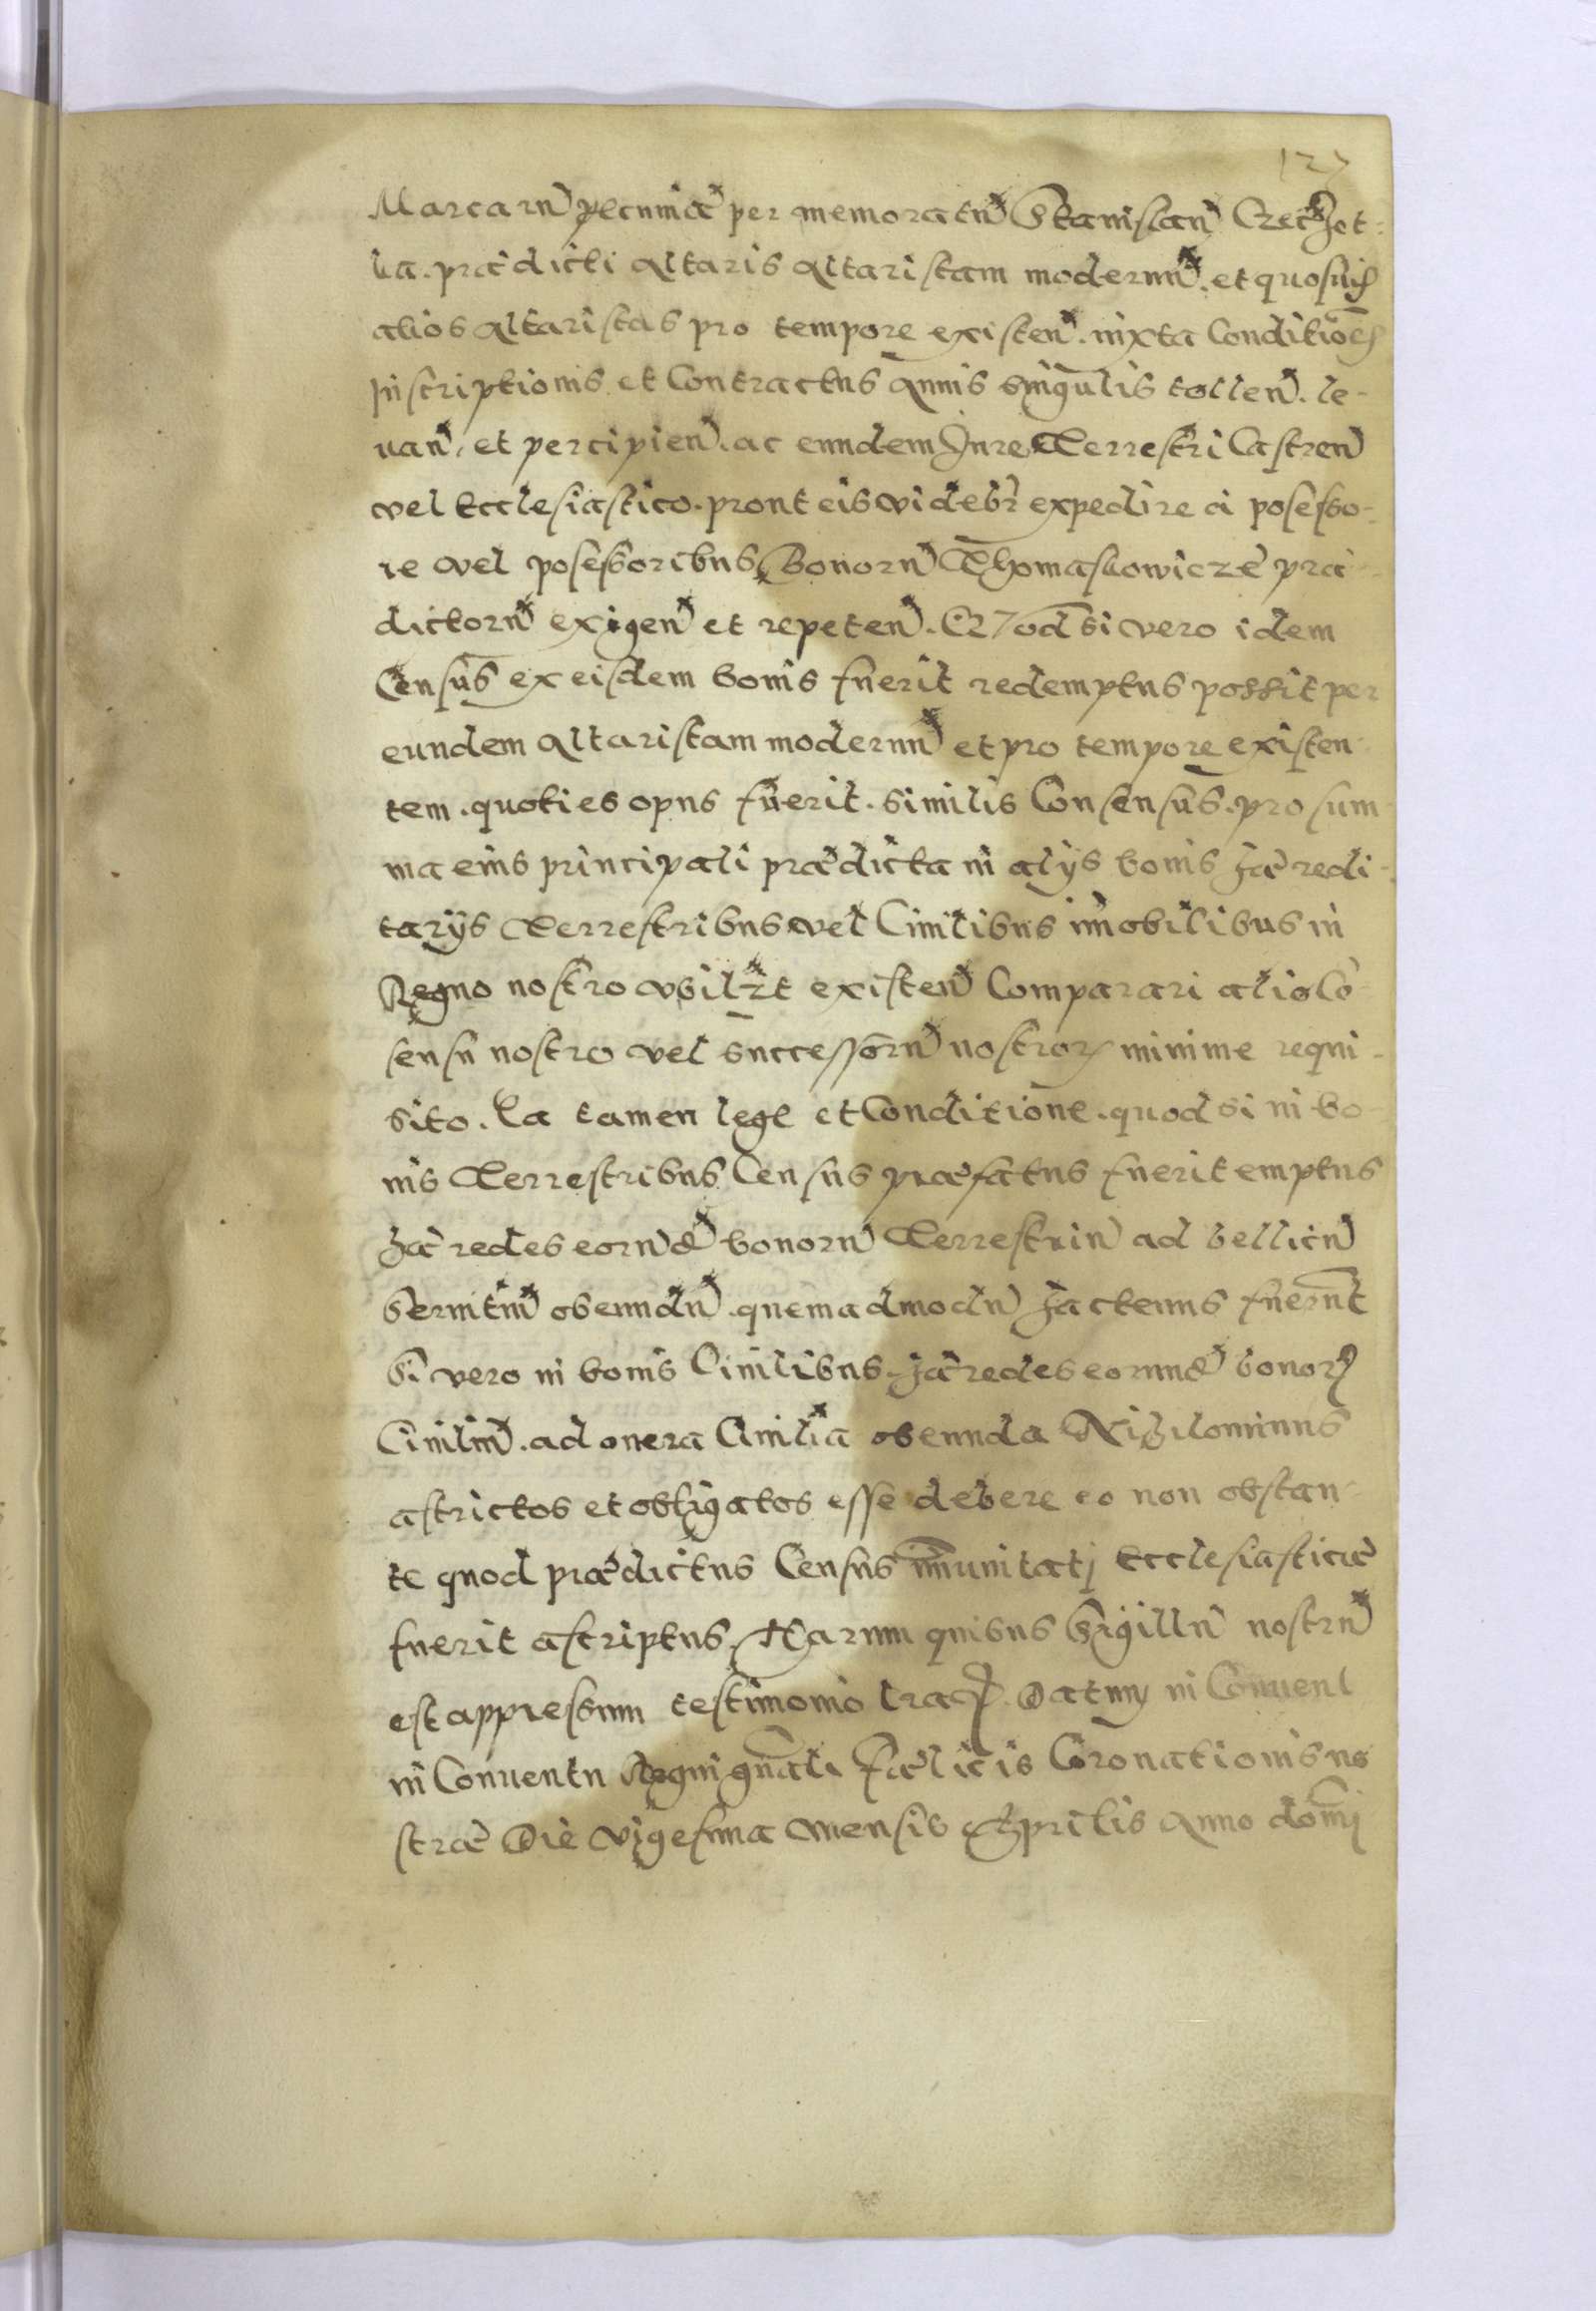 127
Marcarū pecuniæ per memoratū Stanislaū Czechot-
ka prædicti Altaris Altaristam modernū. et quosuis
alios Altaristas pro tempore existen̄. iuxta Conditiões
Inscriptionis et Contractus Annis singulis tollen̄. le-
uan̄, et percipien̄. ac eundem Iure Terrestri Castren̄
vel Ecclesiastico. prout eis videbr̄ expedire a posesso-
re vel posessoribus Bonorū Thomaslowicze præ-
dictorū exigen̄ et repeten̄. Quod si vero idem
Census ex eisdem bonis fuerit redemptus possit per
eundem Altaristam modernū et pro tempore existen-
tem. quoties opus fuerit. similis Consensus. pro sum-
ma eius principali prædicta in alijs bonis hæredi-
tarijs Terrestribus vel Ciuilibus im̄obilibus in
Regno nostro vbilzt existen̄ Comparari alio Cō-
sensu nostro vel successorū nostror̄ minime requi-
sito. Ea tamen lege et Conditione. quod si in bo-
nis Terrestribus Census præfatus fuerit emptus
hæredes eorūd̄ bonorū Terrestriū ad bellicū
seruitiū obeundū. quemadmodū hactenus fuerūt
Si vero in bonis Ciuilibus. hæredes eorund̄ bonor̄
Ciuiliū. ad onera Ciuilia obeunda Nihilominus
astrictos et obligatos esse debere eo non obstan-
te quod prædictus Census im̄unitatj Ecclesiasticæ
fuerit ascriptus. Harum quibus Sigillū nostrū
est appressum testimonio l̄raȝ. Datum in Conuent
in Conuentu Regni gn̄ali Fælicis Coronationis no
stræ Die vigesima mensis Aprilis Anno dom̄j